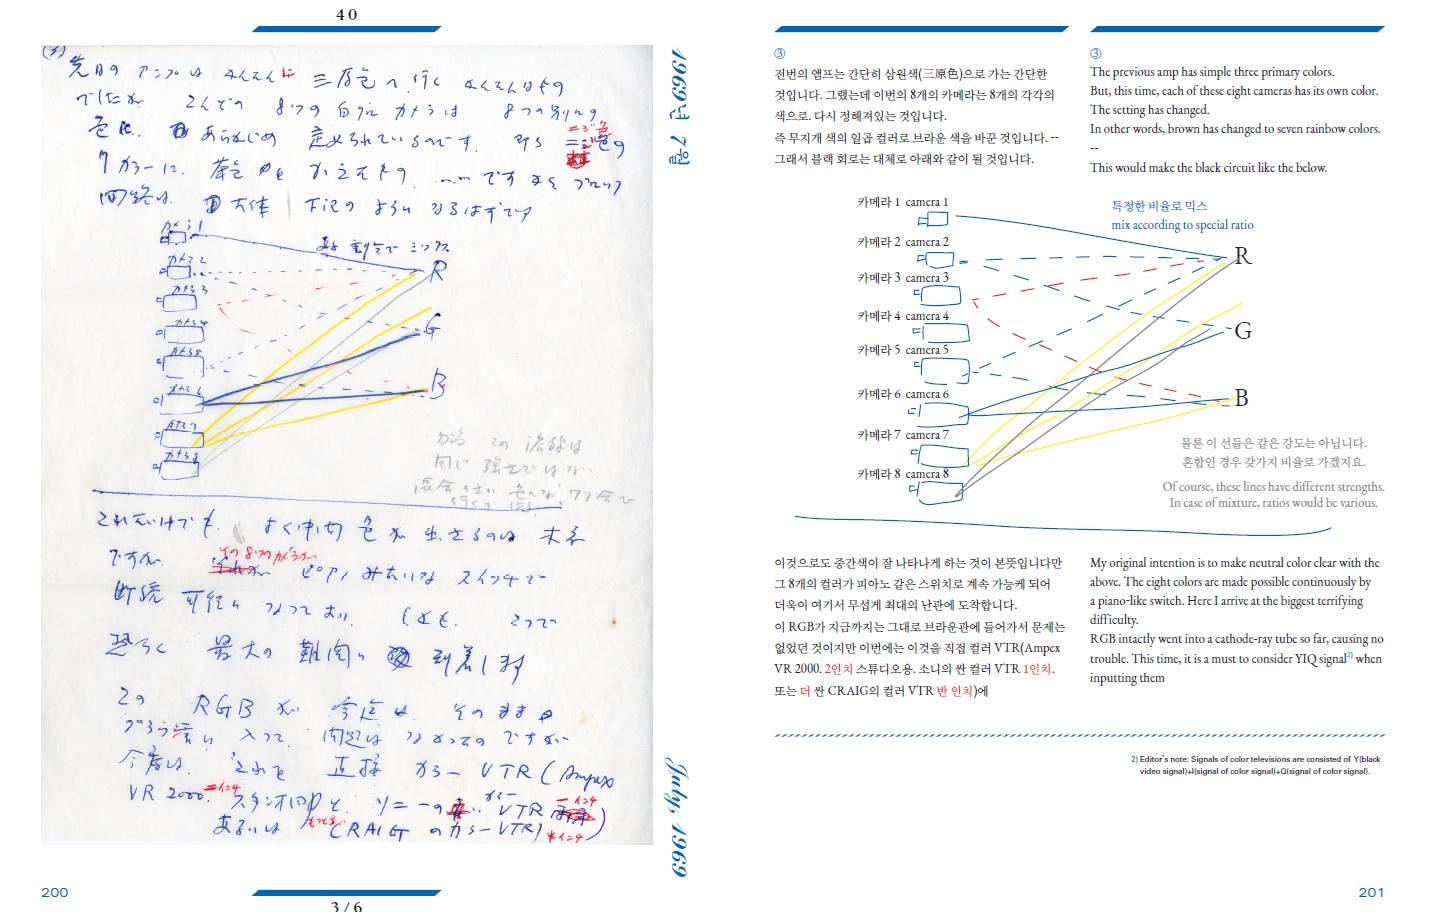 40
(3)
先日のアンプは かんたんに 三原色へ行く かんたんなもの
でしたが こんどの 8つの カメラは 8つの別々の
色に あらかじめ 定められているのです。即ち
7カラーに です から ブラック
回路は 大体 下記のようになるはずです
カメラ1
カメラ2
カメラ3
カメラ4
カメラ5
カメラ6
カメラ7
カメラ8
割合でミックス
R
G
B
勿論 この 線は
同じ 強さではない
これだけでも よく中間色が 生きるのは 本
ですが その8つのカメラが ピアノみたいな スイッチで
断続 可能になっており しかも
恐らく 最大の難関に 到着します
この RGB が 今迄は そのまま
ブラウン管に 入って 問題は なかったのですが
今度は これを 直接 カラー VTR (Ampex
VR 2000 二インチ スタジオ用と ソニーの カラー VTR 一インチ
あるいは もっと CRAIG のカラー VTR) 半インチ)
1969년 7월
July, 1969
200
3 / 6
③
전번의 앰프는 간단히 삼원색(三原色)으로 가는 간단한
것입니다. 그랬는데 이번의 8개의 카메라는 8개의 각각의
색으로. 다시 정해져있는 것입니다.
즉 무지개 색의 일곱 컬러로 브라운 색을 바꾼 것입니다. --
그래서 블랙 회로는 대체로 아래와 같이 될 것입니다.
③
The previous amp has simple three primary colors.
But, this time, each of these eight cameras has its own color.
The setting has changed.
In other words, brown has changed to seven rainbow colors.
--
This would make the black circuit like the below.
카메라 1 camera 1
카메라 2 camera 2
카메라 3 camera 3
카메라 4 camera 4
카메라 5 camera 5
카메라 6 camera 6
카메라 7 camera 7
카메라 8 camera 8
특정한 비율로 믹스
mix according to special ratio
R
G
B
물론 이 선들은 같은 강도는 아닙니다.
혼합인 경우 갖가지 비율로 가겠지요.
Of course, these lines have different strengths.
In case of mixture, ratios would be various.
이것으로도 중간색이 잘 나타나게 하는 것이 본뜻입니다만
그 8개의 컬러가 피아노 같은 스위치로 계속 가능케 되어
더욱이 여기서 무섭게 최대의 난관에 도착합니다.
이 RGB가 지금까지는 그대로 브라운관에 들어가서 문제는
없었던 것이지만 이번에는 이것을 직접 컬러 VTR(Ampex
VR 2000. 2인치 스튜디오용. 소니의 싼 컬러 VTR 1인치.
또는 더 싼 CRAIG의 컬러 VTR 반 인치)에
My original intention is to make neutral color clear with the
above. The eight colors are made possible continuously by
a piano-like switch. Here I arrive at the biggest terrifying
difficulty.
RGB intactly went into a cathode-ray tube so far, causing no
trouble. This time, it is a must to consider YIQ signal2) when
inputting them
2) Editor's note: Signals of color televisions are consisted of Y(black
video signal)+I(signal of color signal)+Q(signal of color signal).
201